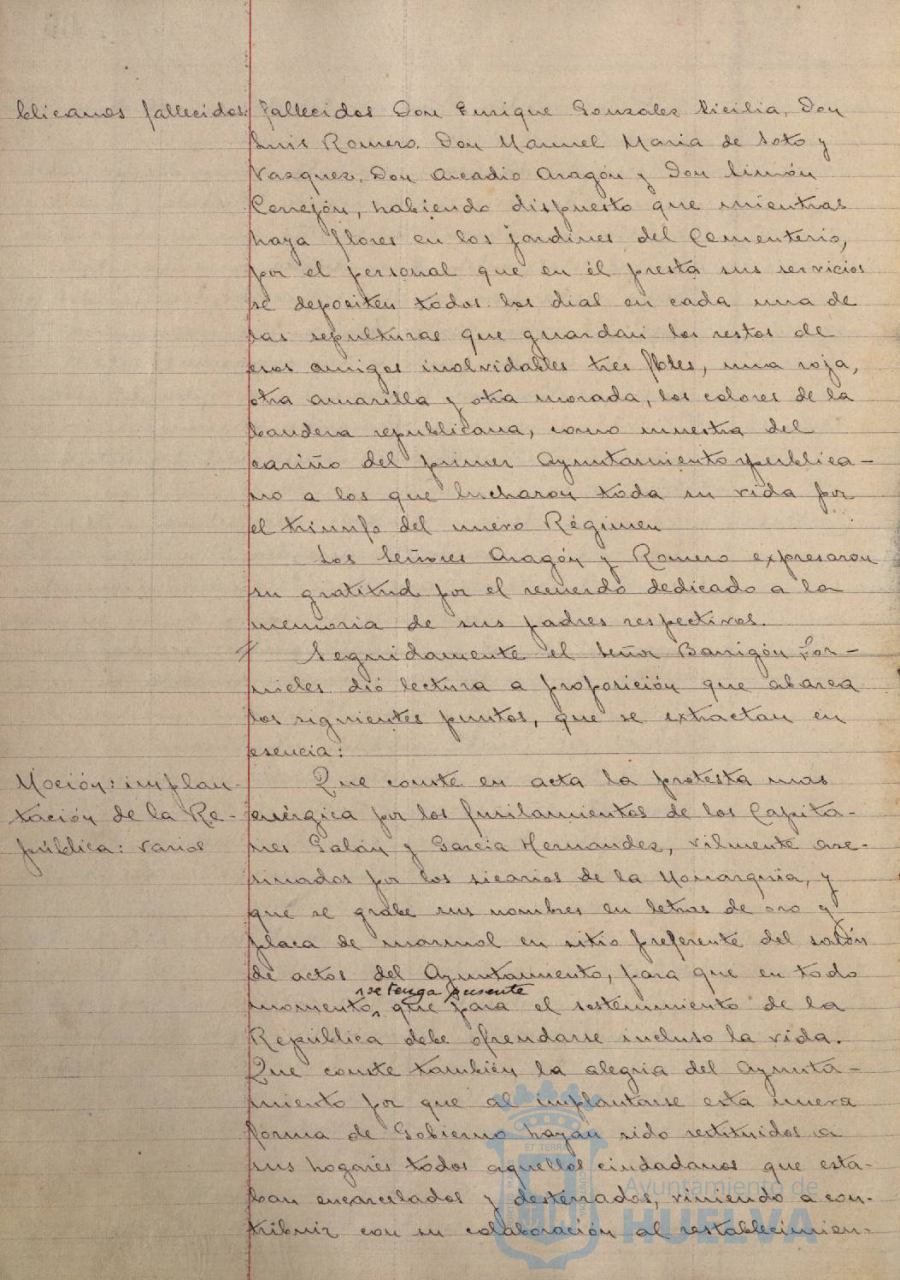 blicanos fallecidos:
fallecidos Don Enrique Gonzalez Sicilia, Don
Luis Romero, Don Manuel Maria de Soto y
Vazquez, Don Arcadio Aragón y Don Simón
Cerrejón, habiendo dispuesto que mientras
haya flores en los jardines del Cementerio,
por el personal que en él presta sus servicios
se depositen todos los dias en cada una de
las sepulturas que guardan los restos de
esos amigos inolvidables tres flores, una roja,
otra amarilla y otra morada, los colores de la
bandera republicana, como muestra del
cariño del primer Ayuntamiento republica-
no a los que lucharon toda su vida por
el triunfo del nuevo Régimen
Los Señores Aragón y Romero expresaron
su gratitud por el recuerdo dedicado a la
memoria de sus padres respectivos.
Seguidamente el Señor Barrigón For-
nieles dió lectura a proposición que abarca
los siguientes puntos, que se extractan en
esencia:
Moción: implan-
tación de la Re-
pública: varios
Que conste en acta la protesta mas
enérgica por los fusilamientos de los Capita-
nes Galán y Garcia Hernandez, vilmente ase-
sinados por los sicarios de la Monarquia, y
que se grabe sus nombres en letras de oro y
placa de marmol en sitio preferente del salón
de actos del Ayuntamiento, para que en todo
momento, se tenga presente que para el sostenimiento de la
República debe ofrendarse incluso la vida.
Que conste también la alegria del Ayunta-
miento por que al implantarse esta nueva
forma de Gobierno hayan sido restituidos a
sus hogares todos aquellos ciudadanos que esta-
ban encarcelados y desterrados, viniendo a con-
tribuir con su colaboración al restablecimien-
Ayuntamiento de
HUELVA